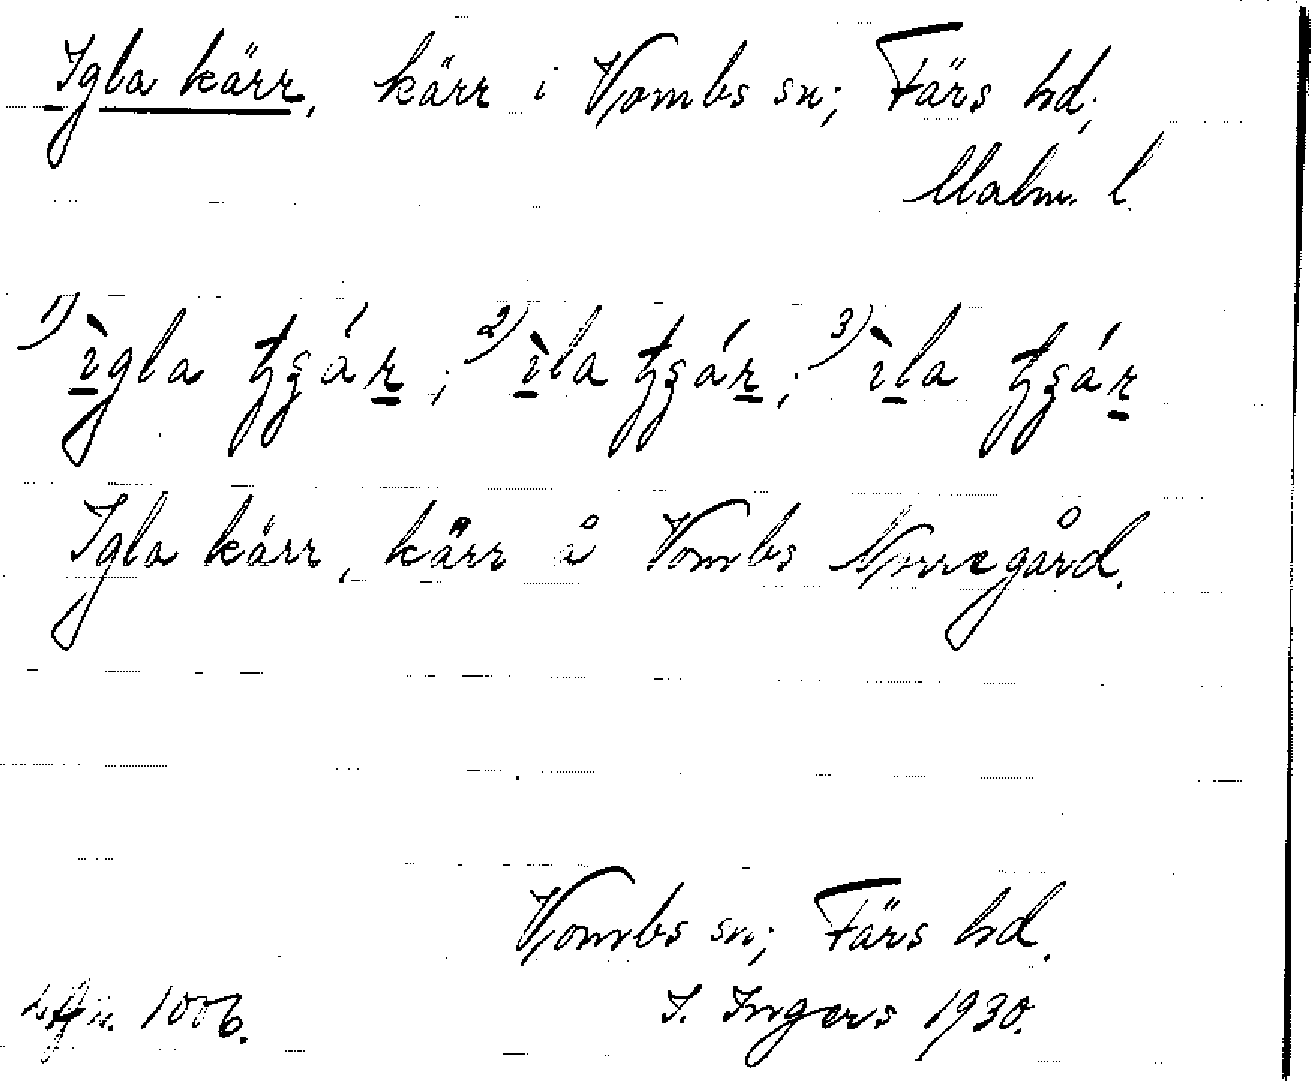 Igla kärr, kärr i Vombs sn; Färs hd;
Malm. l.
1) ìgla tʒár; 2) ìla tʒár; 3) ìla tʒár
Igla kärr, kärr å Vombs Norregård.
Vombs sn; Färs hd.
1006. I. Ingers 1930.